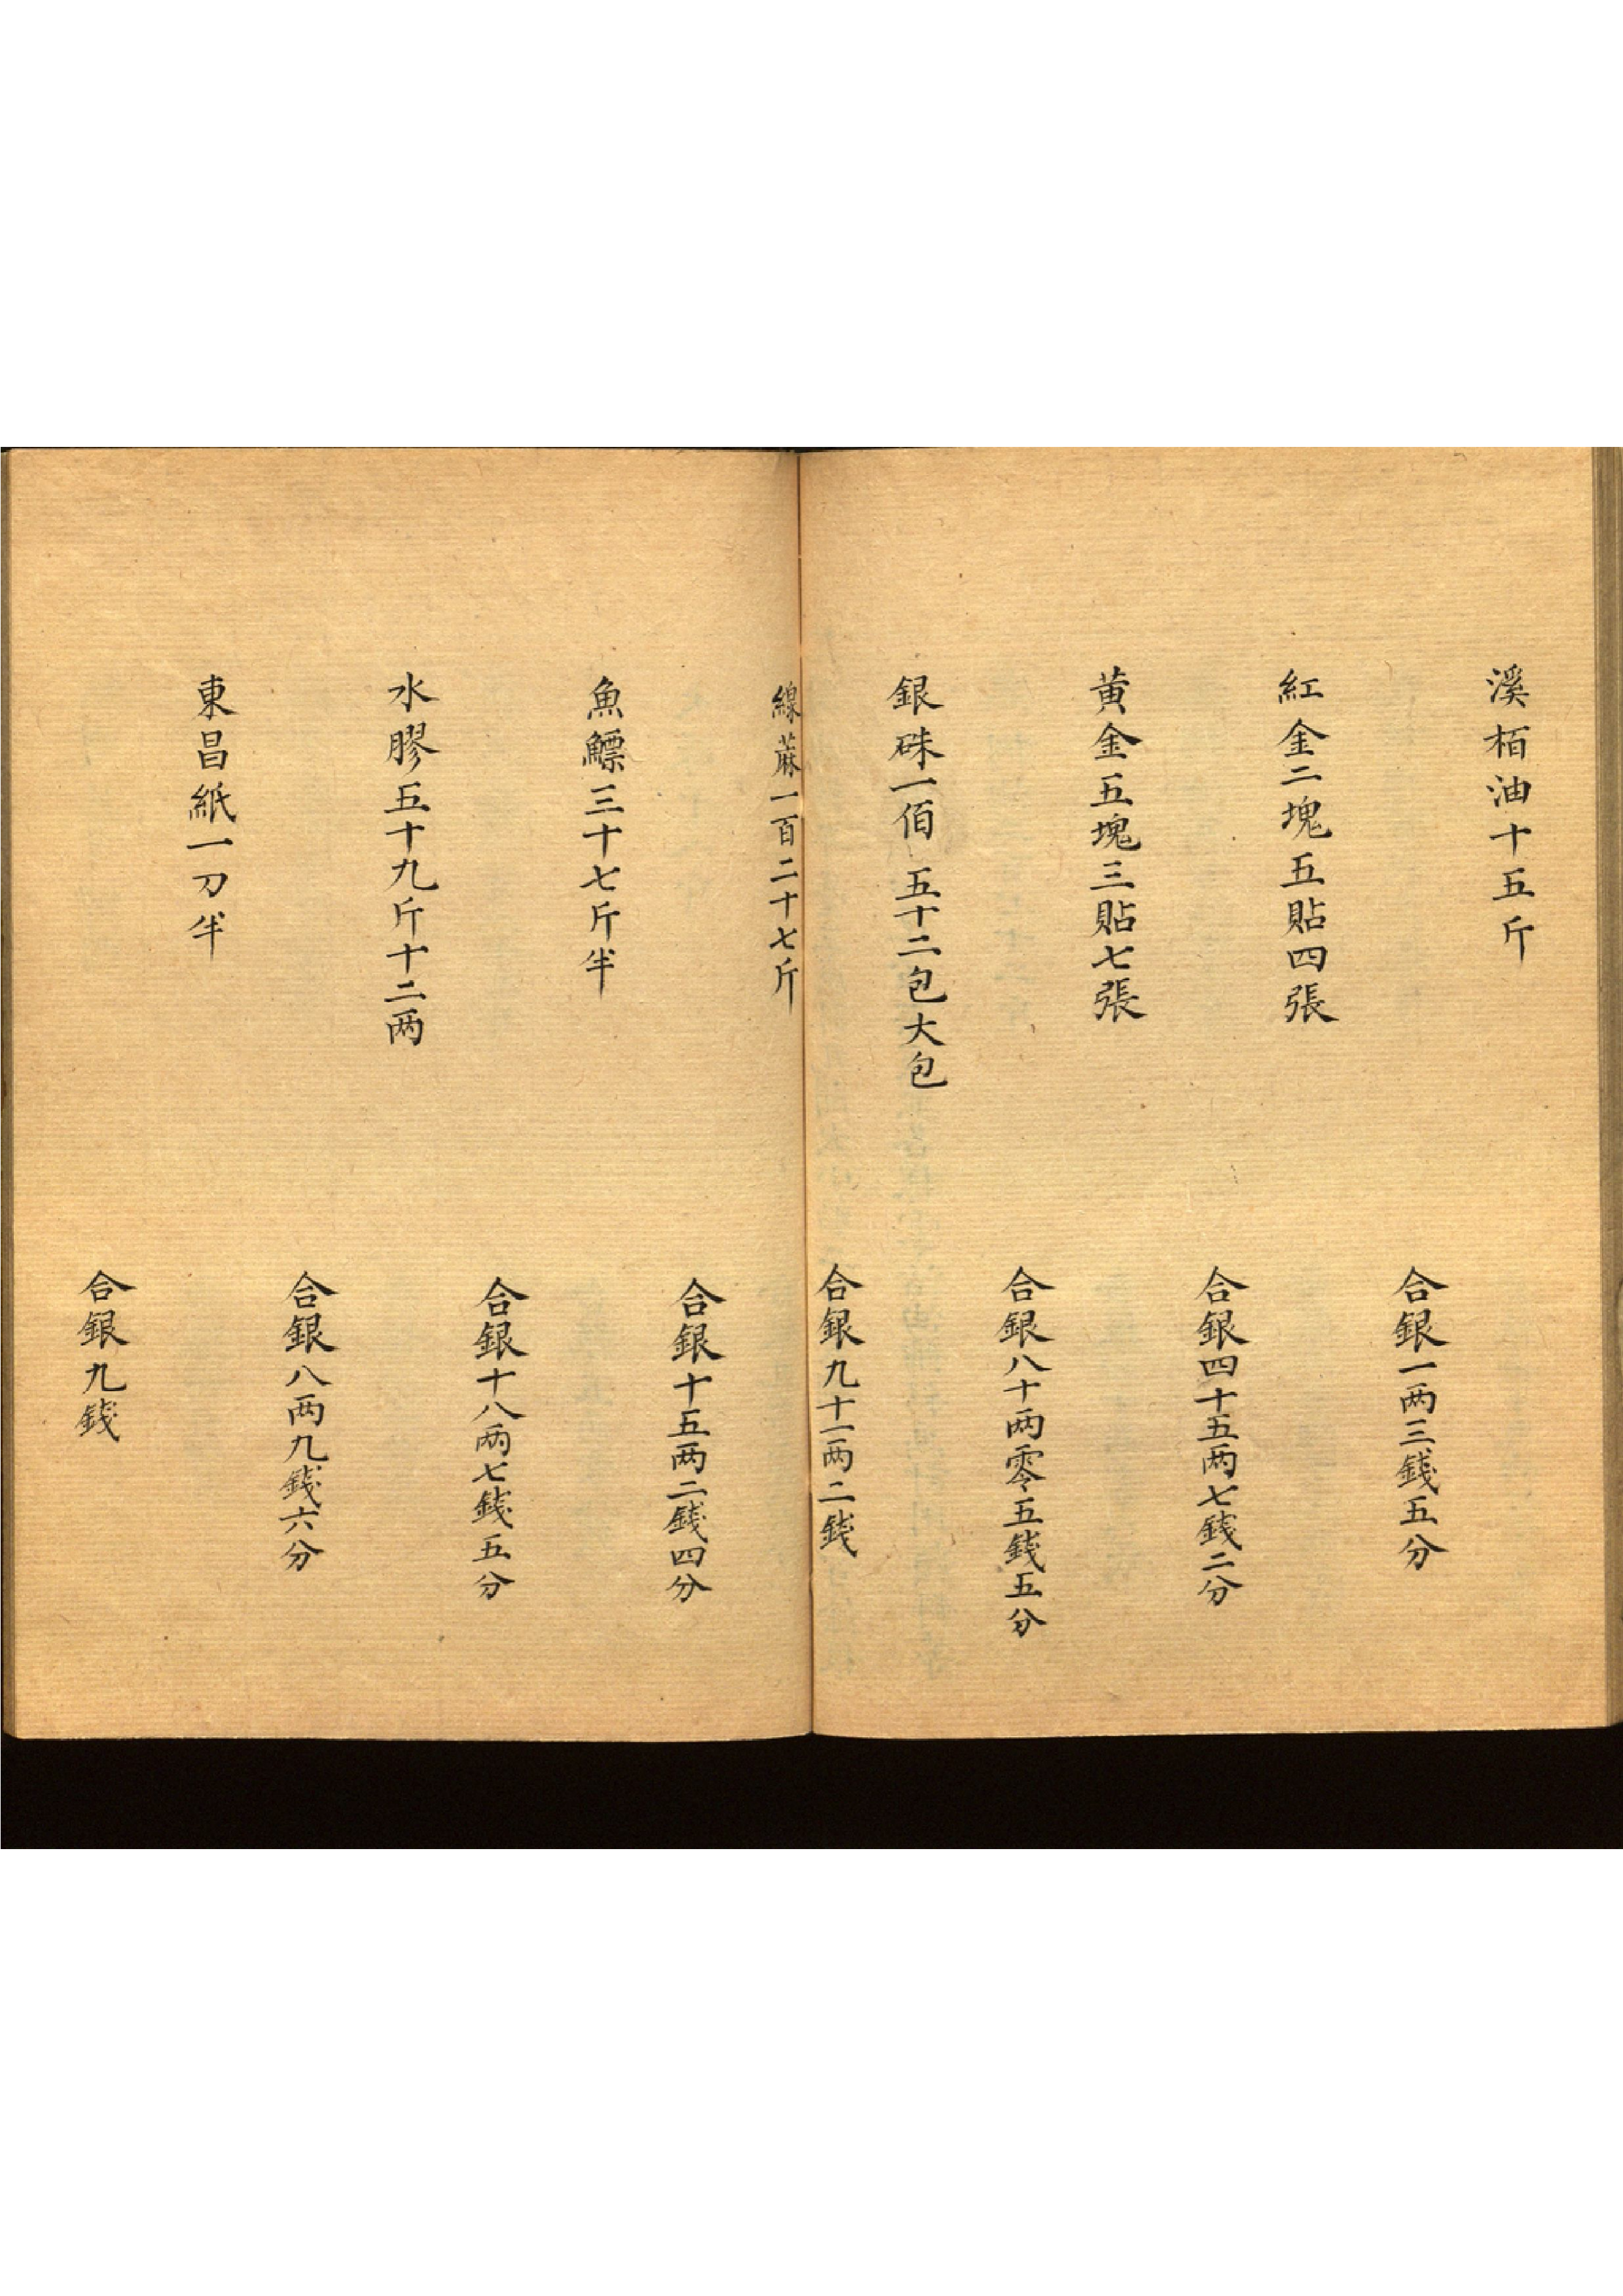 溪栢油十五斤
合銀一两三錢五分
紅金二塊五貼四張
合銀四十五两七錢二分
黄金五塊三貼七張
合銀八十两零五錢五分
銀硃一佰五十二包大包
合銀九十一两二錢
線蔴一百二十七斤
合銀十五两二錢四分
魚鰾三十七斤半
合銀十八两七錢五分
水膠五十九斤十二两
合銀八两九錢六分
東昌紙一刀半
合銀九錢